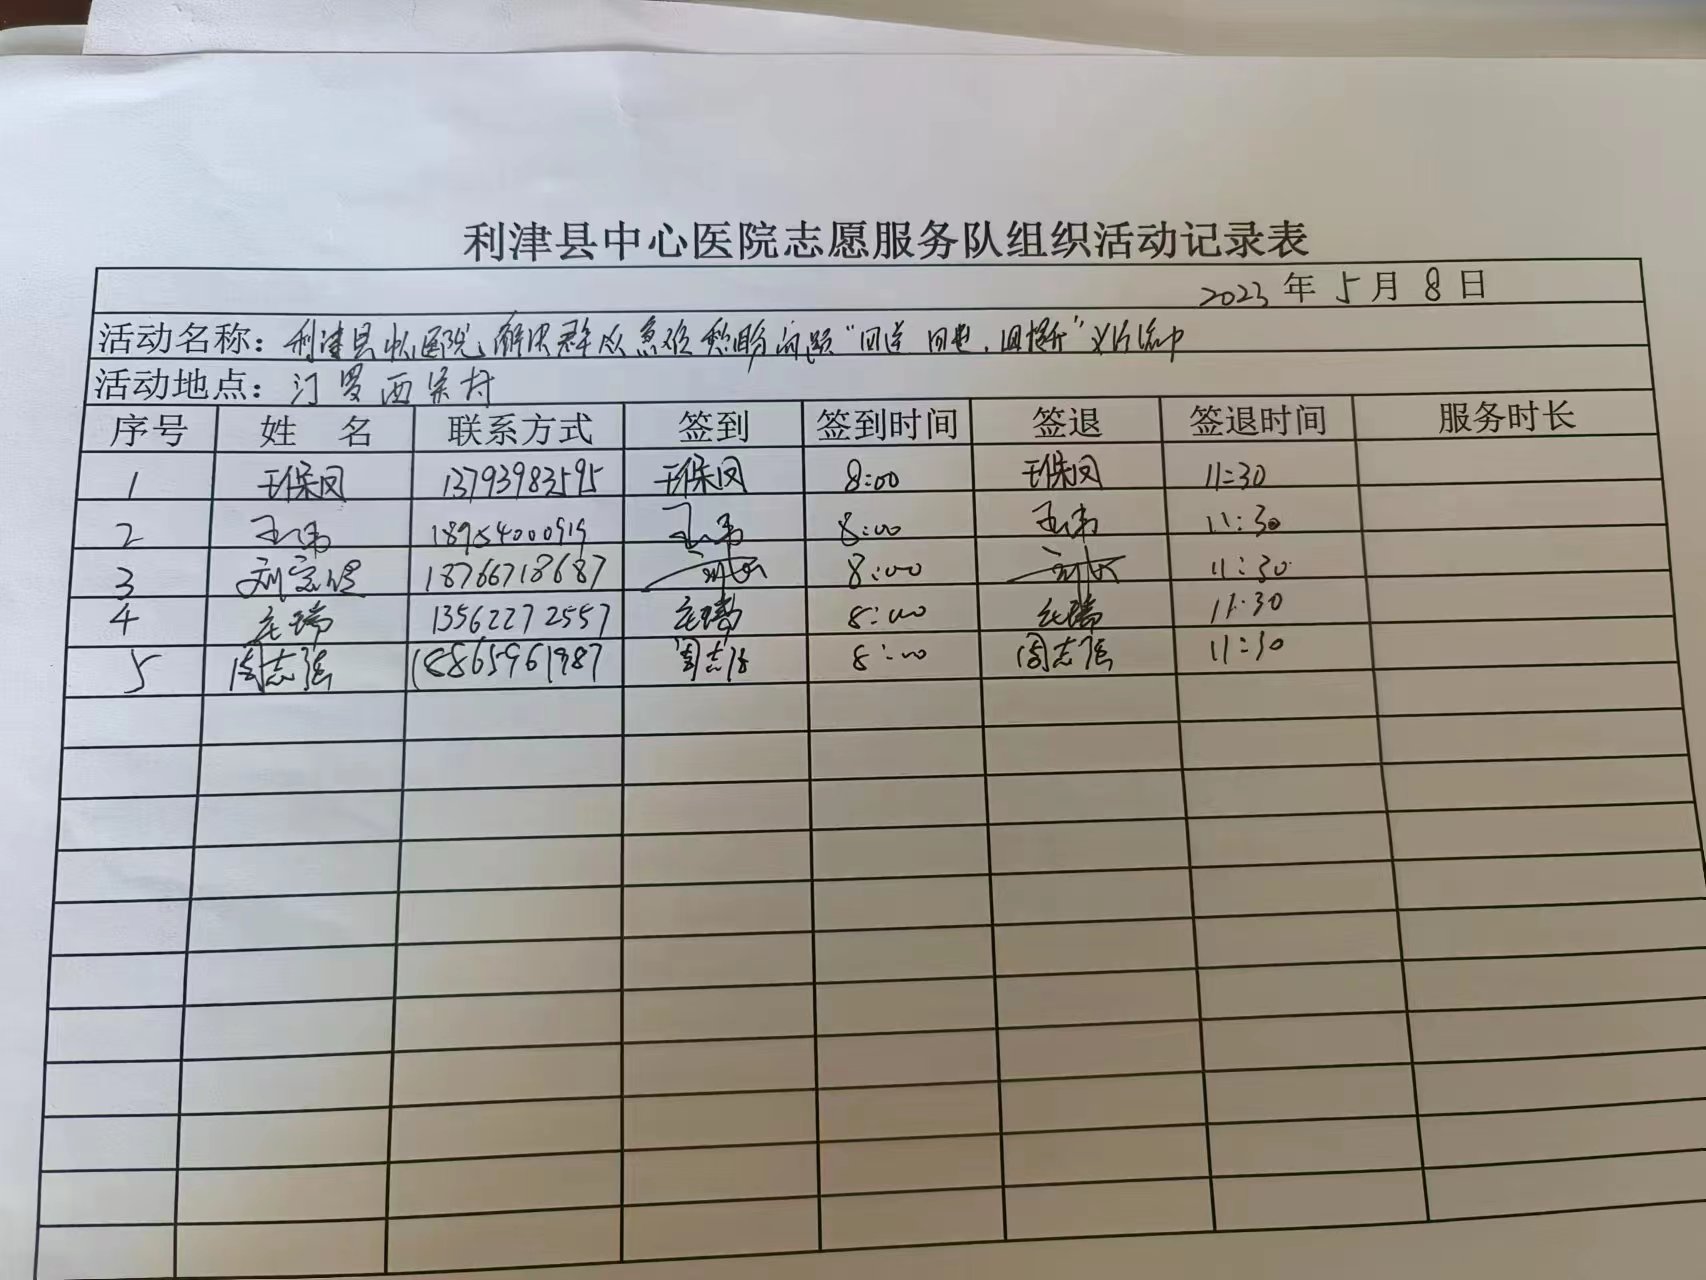 利津县中心医院志愿服务队组织活动记录表
2023年5月8日
活动名称：利津县中心医院、解决群众急难愁盼问题“回 回 、回 ”义诊活动
活动地点：汀罗西宋村
序号 姓 名 联系方式 签到 签到时间 签退 签退时间 服务时长
1 王保凤 13793983595 王保凤 8:00 王保凤 11:30
2 王伟 18954000919 王伟 8:00 王伟 11:30
3 刘 18766718687 8:00 11:30
4 瑞 13562272557 瑞 8:00 瑞 11:30
5 周志强 18865961987 周志强 8:00 周志强 11:30